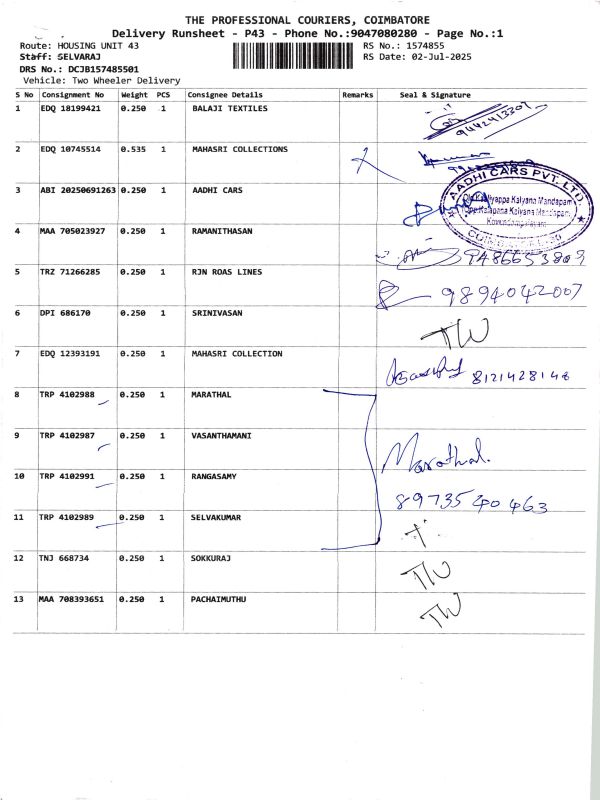 THE PROFESSIONAL COURIERS, COIMBATORE
Delivery Runsheet - P43 - Phone No.:9047080280 - Page No.:1
Route: HOUSING UNIT 43 RS No.: 1574855
Staff: SELVARAJ RS Date: 02-Jul-2025
DRS No.: DCJB157485501
Vehicle: Two Wheeler Delivery
S No Consignment No Weight PCS Consignee Details Remarks Seal & Signature
1 EDQ 18199421 0.250 1 BALAJI TEXTILES 9442413307
2 EDQ 10745514 0.535 1 MAHASRI COLLECTIONS
3 ABI 20250691263 0.250 1 AADHI CARS
AADHI CARS PVT. LTD.
Kaliyappa Kalyana Mandapam
Kalyana Mandapam,
4 MAA 705023927 0.250 1 RAMANITHASAN 9486653809
5 TRZ 71266285 0.250 1 RJN ROAS LINES 9894042007
6 DPI 686170 0.250 1 SRINIVASAN TW
7 EDQ 12393191 0.250 1 MAHASRI COLLECTION 8121428148
8 TRP 4102988 0.250 1 MARATHAL
9 TRP 4102987 0.250 1 VASANTHAMANI Marathal.
10 TRP 4102991 0.250 1 RANGASAMY 89735 40463
11 TRP 4102989 0.250 1 SELVAKUMAR
12 TNJ 668734 0.250 1 SOKKURAJ TW
13 MAA 708393651 0.250 1 PACHAIMUTHU TW